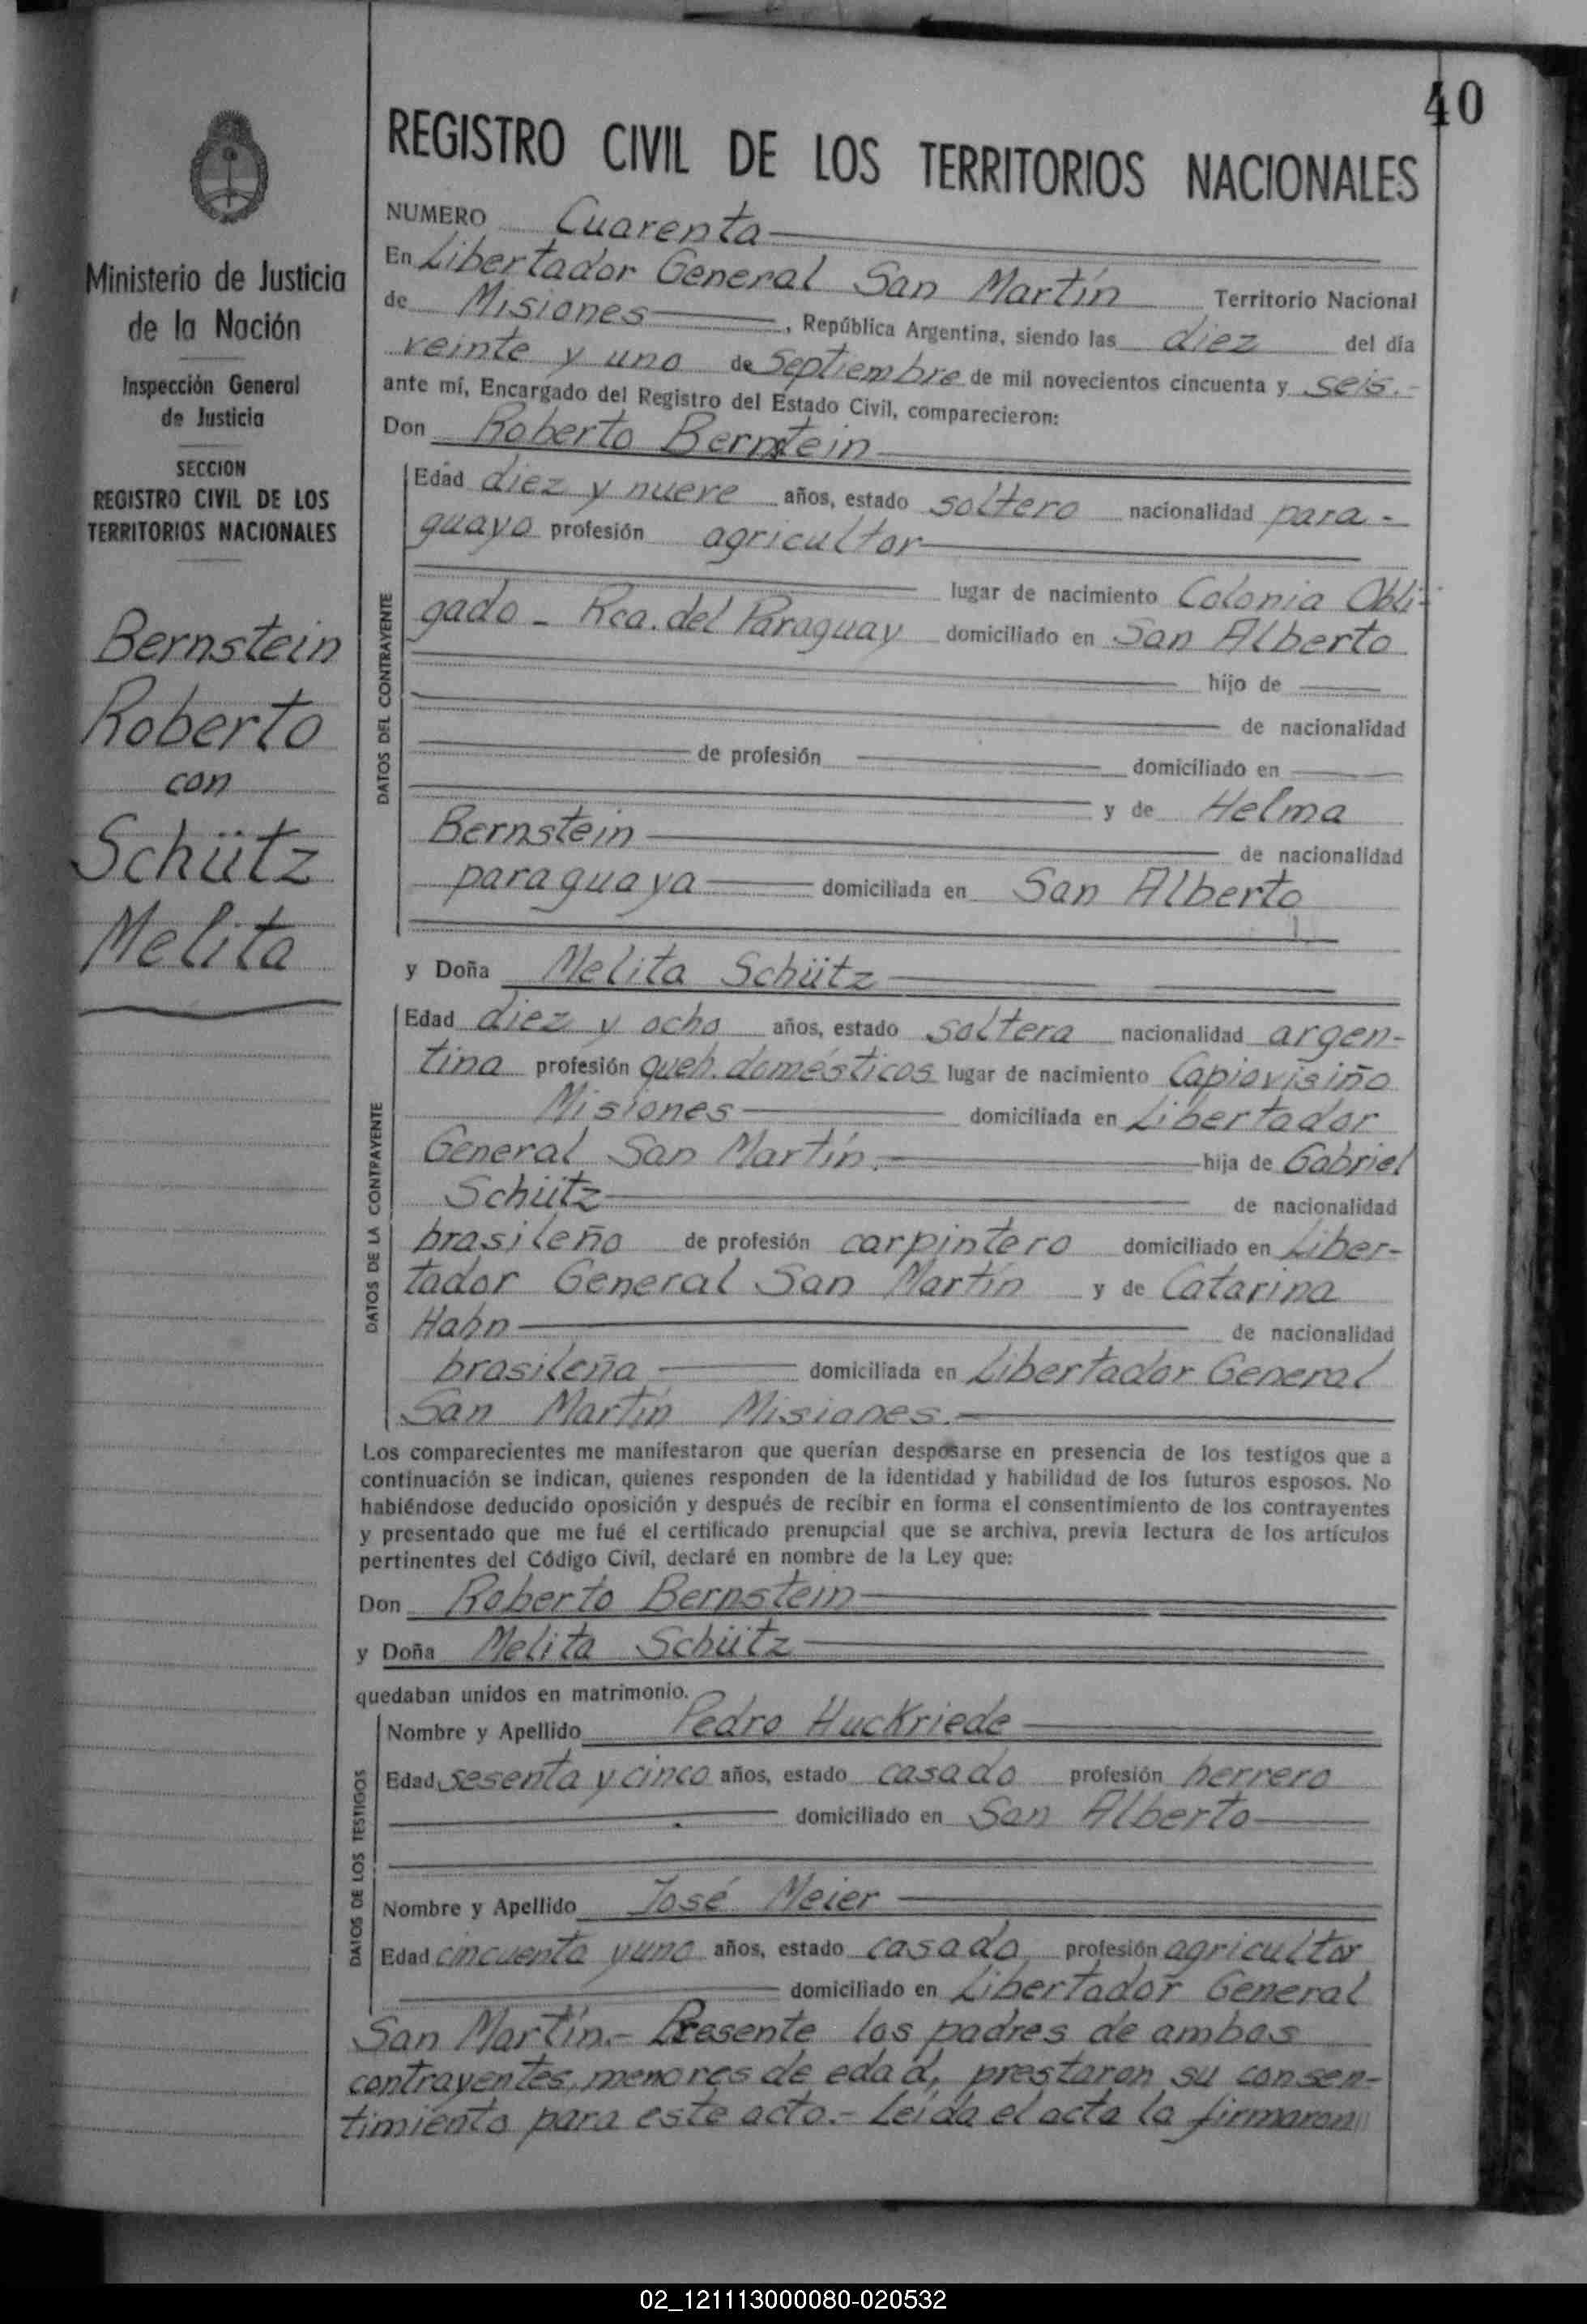 40
REGISTRO CIVIL DE LOS TERRITORIOS NACIONALES
Ministerio de Justicia
de la Nación
Inspección General
de Justicia
SECCION
REGISTRO CIVIL DE LOS
TERRITORIOS NACIONALES
Bernstein
Roberto
con
Schütz
Melita
NUMERO Cuarenta
En Libertador General San Martín Territorio Nacional
de Misiones, República Argentina, siendo las diez del día
veinte y uno de Septiembre de mil novecientos cincuenta y seis.-
ante mí, Encargado del Registro del Estado Civil, comparecieron:
Don Roberto Bernstein
DATOS DEL CONTRAYENTE
Edad diez y nueve años, estado soltero nacionalidad para-
guayo profesión agricultor
lugar de nacimiento Colonia Obli-
gado - Rca. del Paraguay domiciliado en San Alberto
hijo de
de nacionalidad
de profesión domiciliado en
y de Helma
Bernstein de nacionalidad
paraguaya domiciliada en San Alberto
y Doña Melita Schütz
DATOS DE LA CONTRAYENTE
Edad diez y ocho años, estado soltera nacionalidad argen-
tina profesión queh. domésticos lugar de nacimiento Capiovisiño
Misiones domiciliada en Libertador
General San Martín. hija de Gabriel
Schütz de nacionalidad
brasileño de profesión carpintero domiciliado en Liber-
tador General San Martín y de Catarina
Hahn de nacionalidad
brasileña domiciliada en Libertador General
San Martín Misiones.
Los comparecientes me manifestaron que querían desposarse en presencia de los testigos que a
continuación se indican, quienes responden de la identidad y habilidad de los futuros esposos. No
habiéndose deducido oposición y después de recibir en forma el consentimiento de los contrayentes
y presentado que me fué el certificado prenupcial que se archiva, previa lectura de los artículos
pertinentes del Código Civil, declaré en nombre de la Ley que:
Don Roberto Bernstein
y Doña Melita Schütz
quedaban unidos en matrimonio.
DATOS DE LOS TESTIGOS
Nombre y Apellido Pedro Huckriede
Edad sesenta y cinco años, estado casado profesión herrero
domiciliado en San Alberto
Nombre y Apellido José Meier
Edad cincuenta y uno años, estado casado profesión agricultor
domiciliado en Libertador General
San Martín.- Presente los padres de ambos
contrayentes, menores de edad, prestaron su consen-
timiento para este acto.- Leída el acta la firmaron
02_121113000080-020532